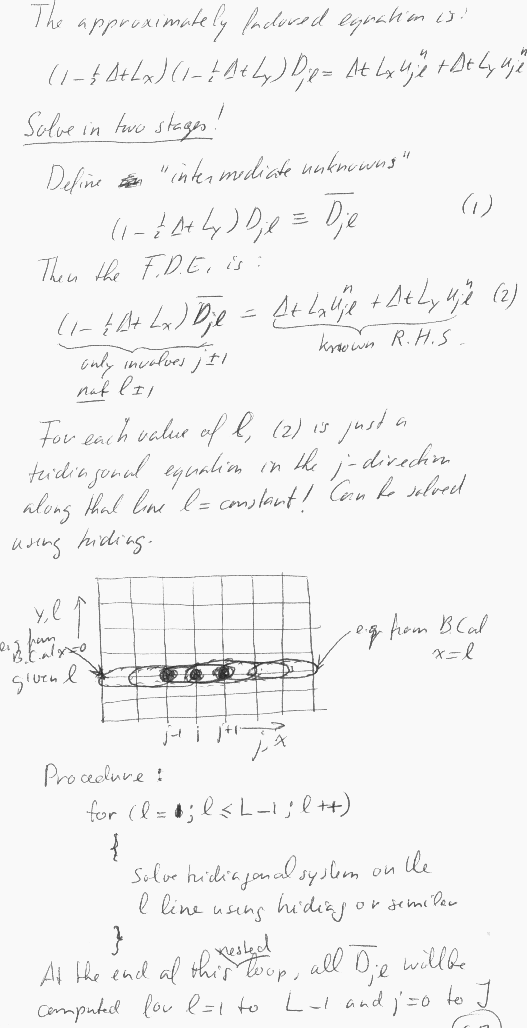 The approximately factored equation is:
(1-½ΔtLx)(1-½ΔtLy)Djl = ΔtLx uⁿjl + ΔtLy uⁿjl
Solve in two stages!
Define "intermediate unknowns"
(1-½ΔtLy) Djl ≡ D̅jl (1)
Then the F.D.E. is:
(1-½ΔtLx) D̅jl = ΔtLx uⁿjl + ΔtLy uⁿjl (2)
only involves j±1
not l±1
known R.H.S.
For each value of l, (2) is just a
tridiagonal equation in the j-direction
along that line l = constant! Can be solved
using tridiag.
y, l
eq from
B.C at x=0
given l
eq from B.C at
x=l
j-1 j j+1
j, x
Procedure:
for (l=1; l≤L-1; l++)
{
Solve tridiagonal system on the
l line using tridiag or similar
}
At the end of this nested loop, all D̅jl will be
computed for l=1 to L-1 and j=0 to J